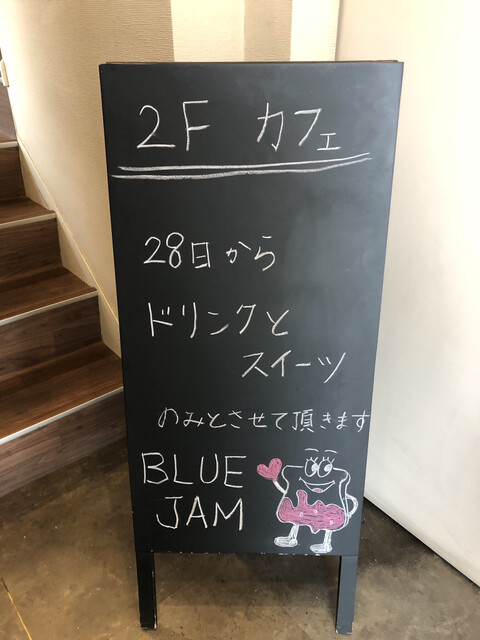 2F カフェ
28日から
ドリンクと
スイーツ
のみとさせて頂きます
BLUE
JAM